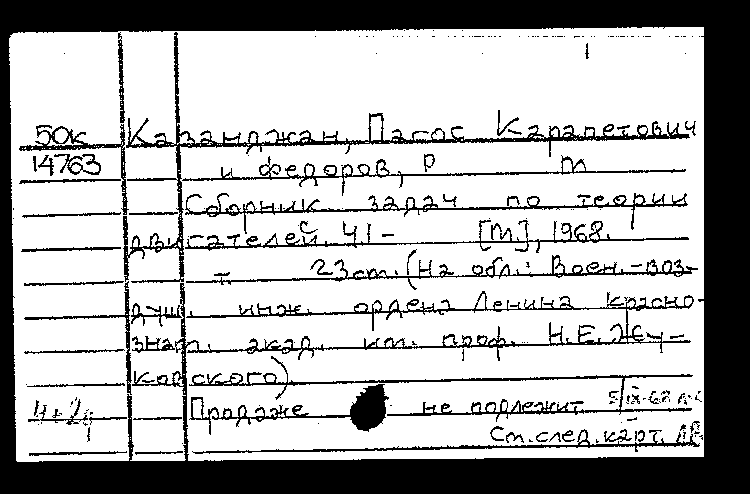 50к Казанджан, Пагос Карапетович
14763 и Федоров, Р М
Сборник задач по теории
двигателей. Ч1- [М.], 1968.
т. 23см. (На обл.: Воен.-воз-
душ. инж. ордена Ленина красно-
знам. акад. им. проф. Н.Е. Жу-
ковского).
4+2 Продаже не подлежит 5/IX-68
См. след. карт.